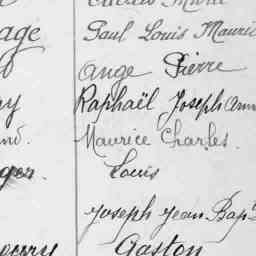 age Paul Louis Mauric
Ange Pierre
ay Raphaël Joseph Ann
nd. Maurice Charles.
ger. Louis
Joseph Jean Bap
Gaston